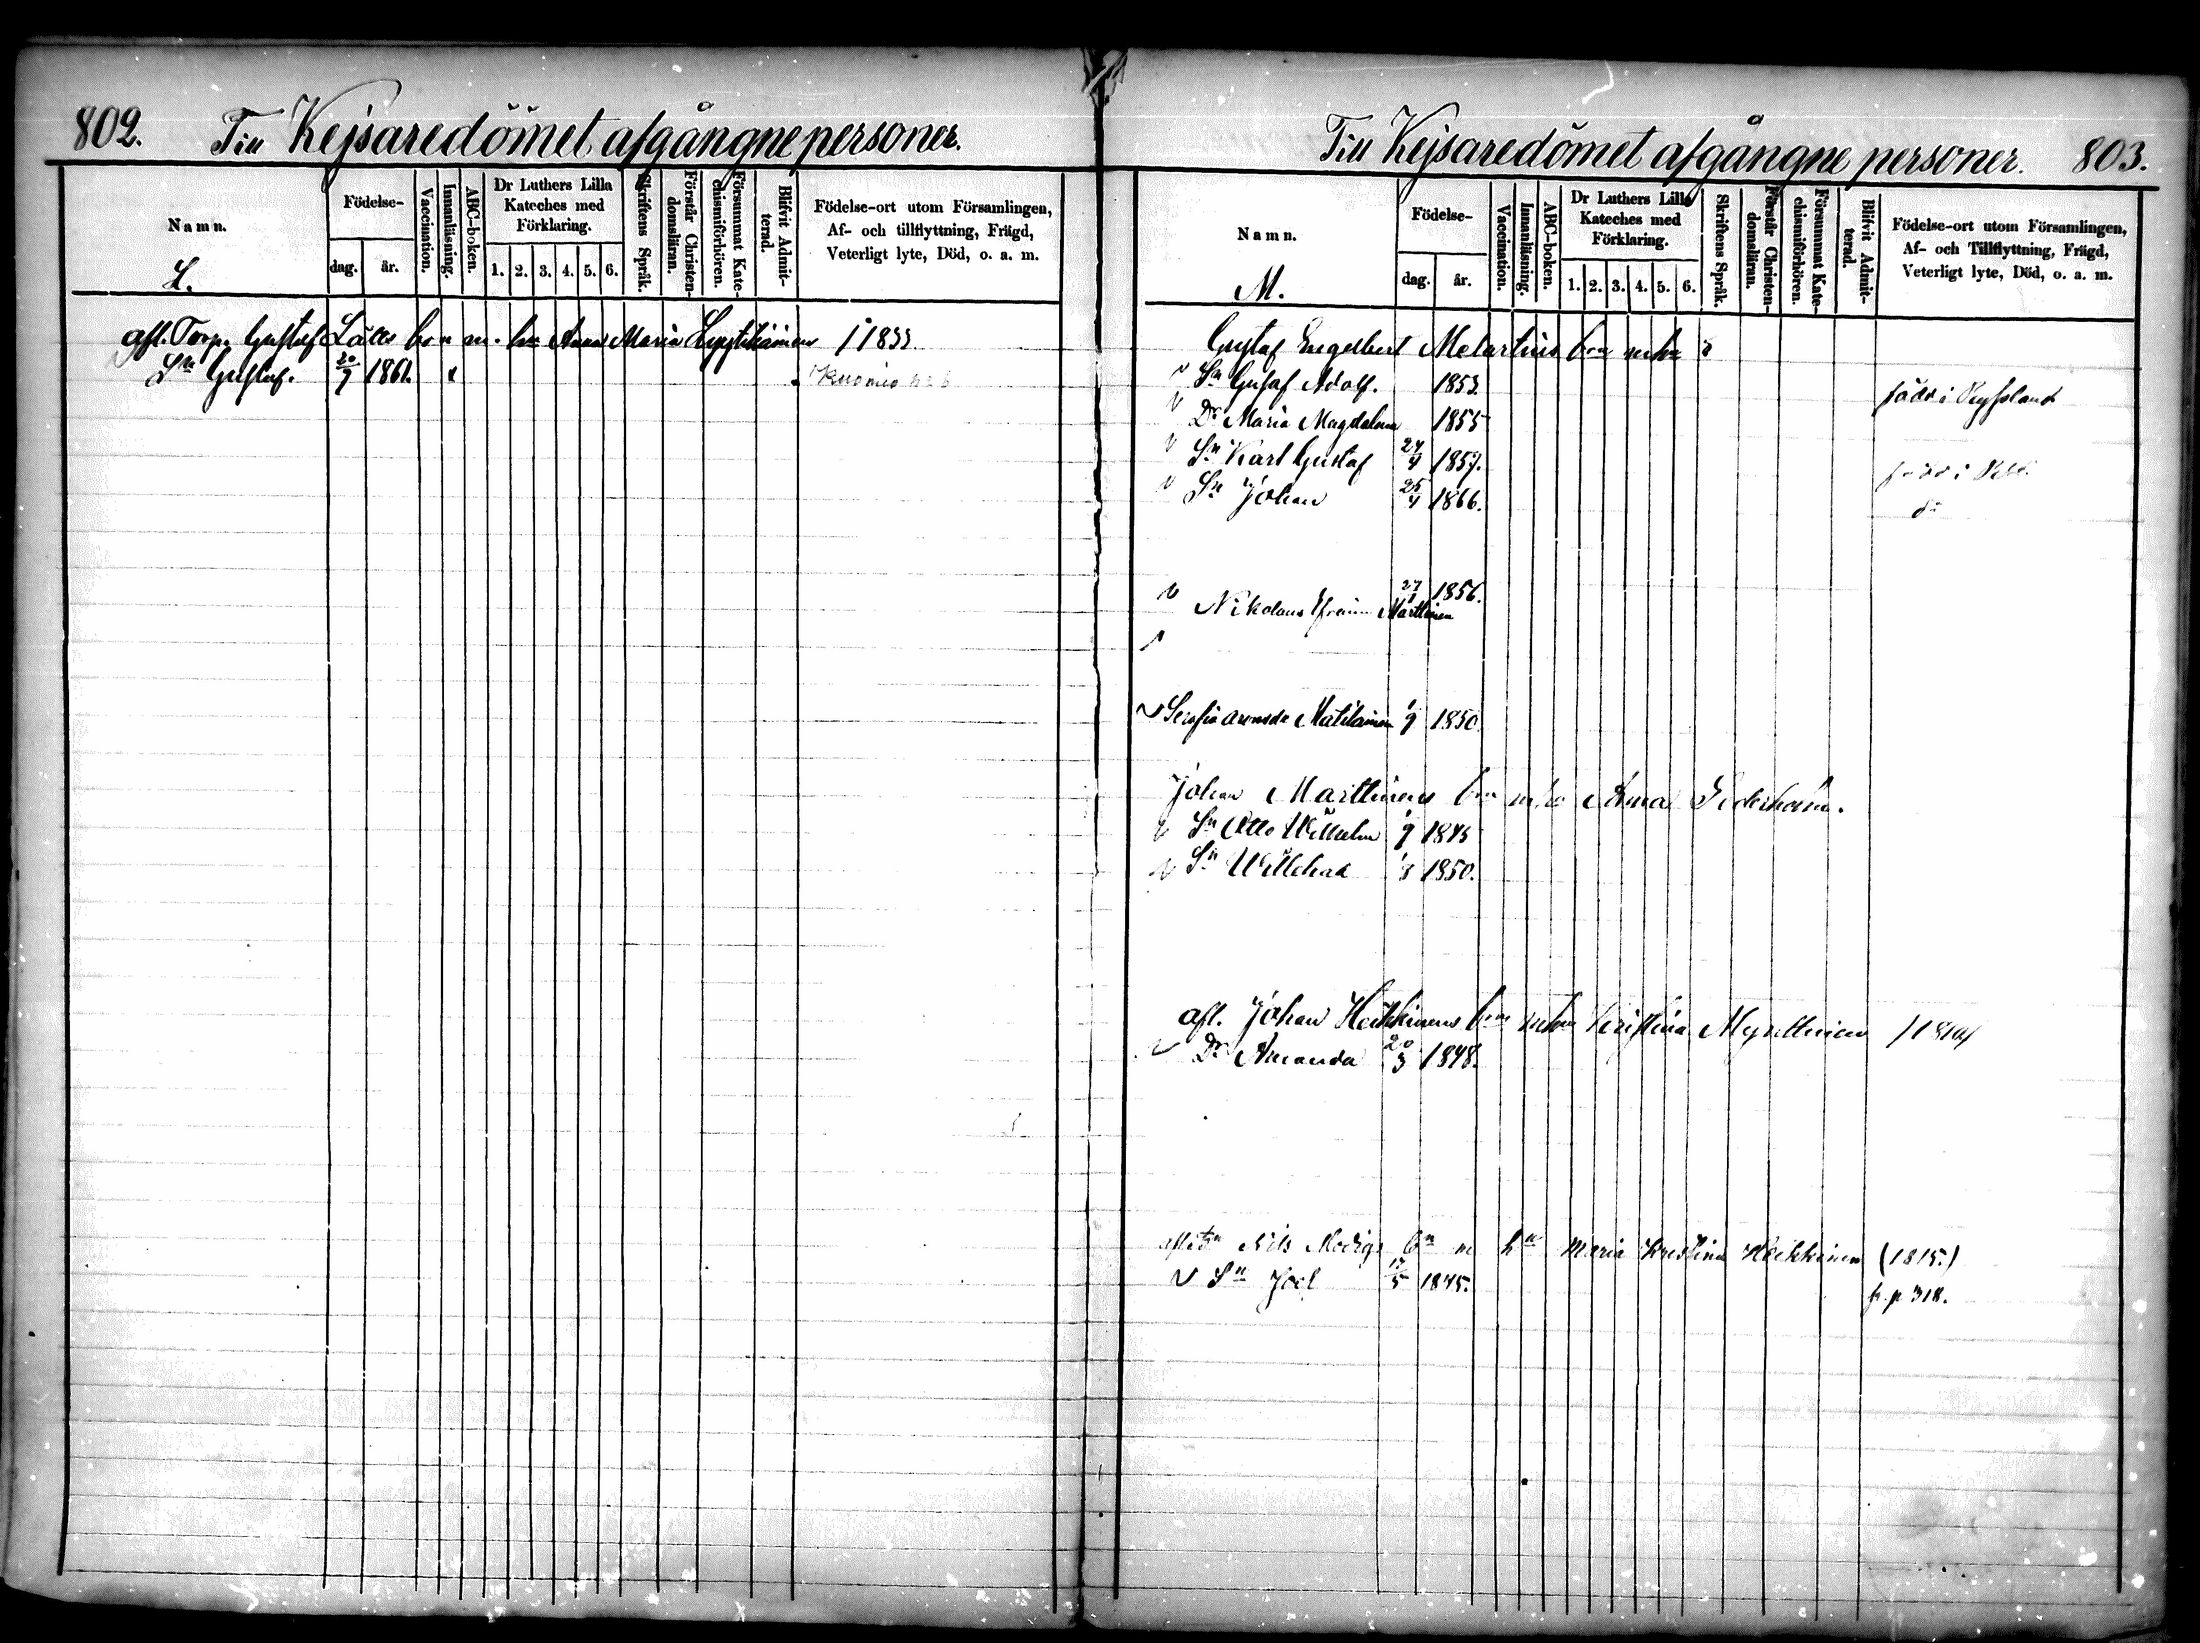 802. Till Kejsaredömet afgångne personer.
Namn.
L.
Födelse-
dag. år.
Vaccination.
Innanläsning.
ABC-boken.
Dr Luthers Lilla
Kateches med
Förklaring.
1. 2. 3. 4. 5. 6.
Skriftens Språk.
Förstår Christen-
domsläran.
Försummat Kate-
chismiförhören.
Blifvit Admit-
terad.
Födelse-ort utom Församlingen,
Af- och tillflyttning, Frägd,
Veterligt lyte, Död, o. a. m.
afl. Torp. Gustaf m. Anna Maria
Sn Gustaf. 20/7 1861. x
Till Kejsaredömet afgångne personer. 803.
Namn.
M.
Födelse-
dag. år.
Vaccination.
Innanläsning.
ABC-boken.
Dr Luthers Lilla
Kateches med
Förklaring.
1. 2. 3. 4. 5. 6.
Skriftens Språk.
Förstår Christen-
domsläran.
Försummat Kate-
chismiförhören.
Blifvit Admit-
terad.
Födelse-ort utom Församlingen,
Af- och Tillflyttning, Frägd,
Veterligt lyte, Död, o. a. m.
Gustaf Engelbert Melartins
Sn Gustaf Adolf. 1853.
Dr Maria Magdalena 1855
Sn Karl Gustaf 1857.
Sn Johan 25/4 1866.
1856.
Nikolaus Marttinen
Matilainen 1850.
Johan Marttinens Anna
Sn Otto Wilhelm 1845
Sn Willehad 1850.
afl. Johan Heikkinens
Dr Amanda 20/3 1848.
Nils bn m hn Maria Kristina Heikkinen (1815.)
Sn Joel 1845. fr. p 318.